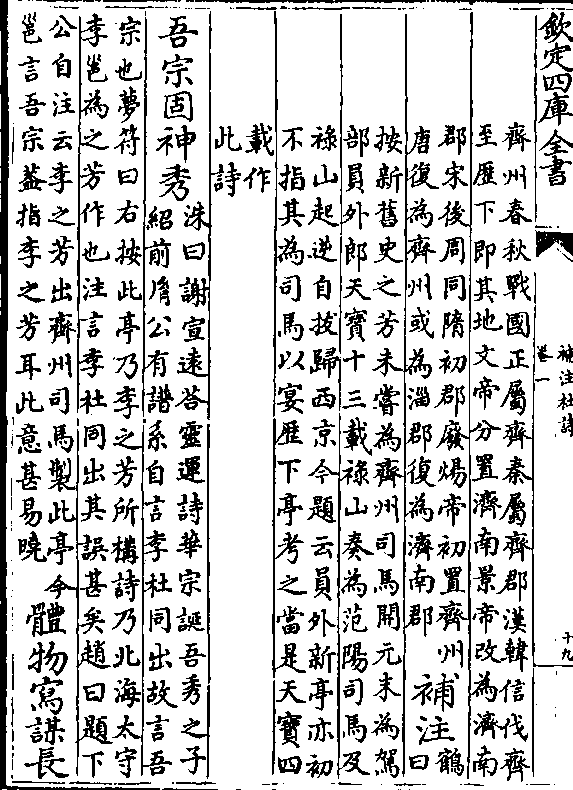 欽定四庫全書
補注杜詩
卷一
十九
齊州春秋戰國正屬齊秦屬齊郡漢韓信伐齊
至歷下即其地文帝分置濟南景帝改為濟南
郡宋後周同隋初郡廢煬帝初置齊州
唐復為齊州或為淄郡復為濟南郡
補注
鶴曰
按新舊史之芳未嘗為齊州司馬開元末為駕
部員外郎天寶十三載祿山奏為范陽司馬及
祿山起逆自拔歸西京今題云員外新亭亦初
不指其為司馬以宴歷下亭考之當是天寶四
載作
此詩
吾宗固神秀
洙曰謝宣遠荅靈運詩華宗誕吾秀之子
紹前膺公有譜系自言李杜同出故言吾
宗也夢符曰右按此亭乃李之芳所構詩乃北海太守
李邕為之芳作也注言李杜同出其誤甚矣趙曰題下
公自注云李之芳出齊州司馬製此亭今
邕言吾宗蓋指李之芳耳此意甚易曉
體物寫謀長